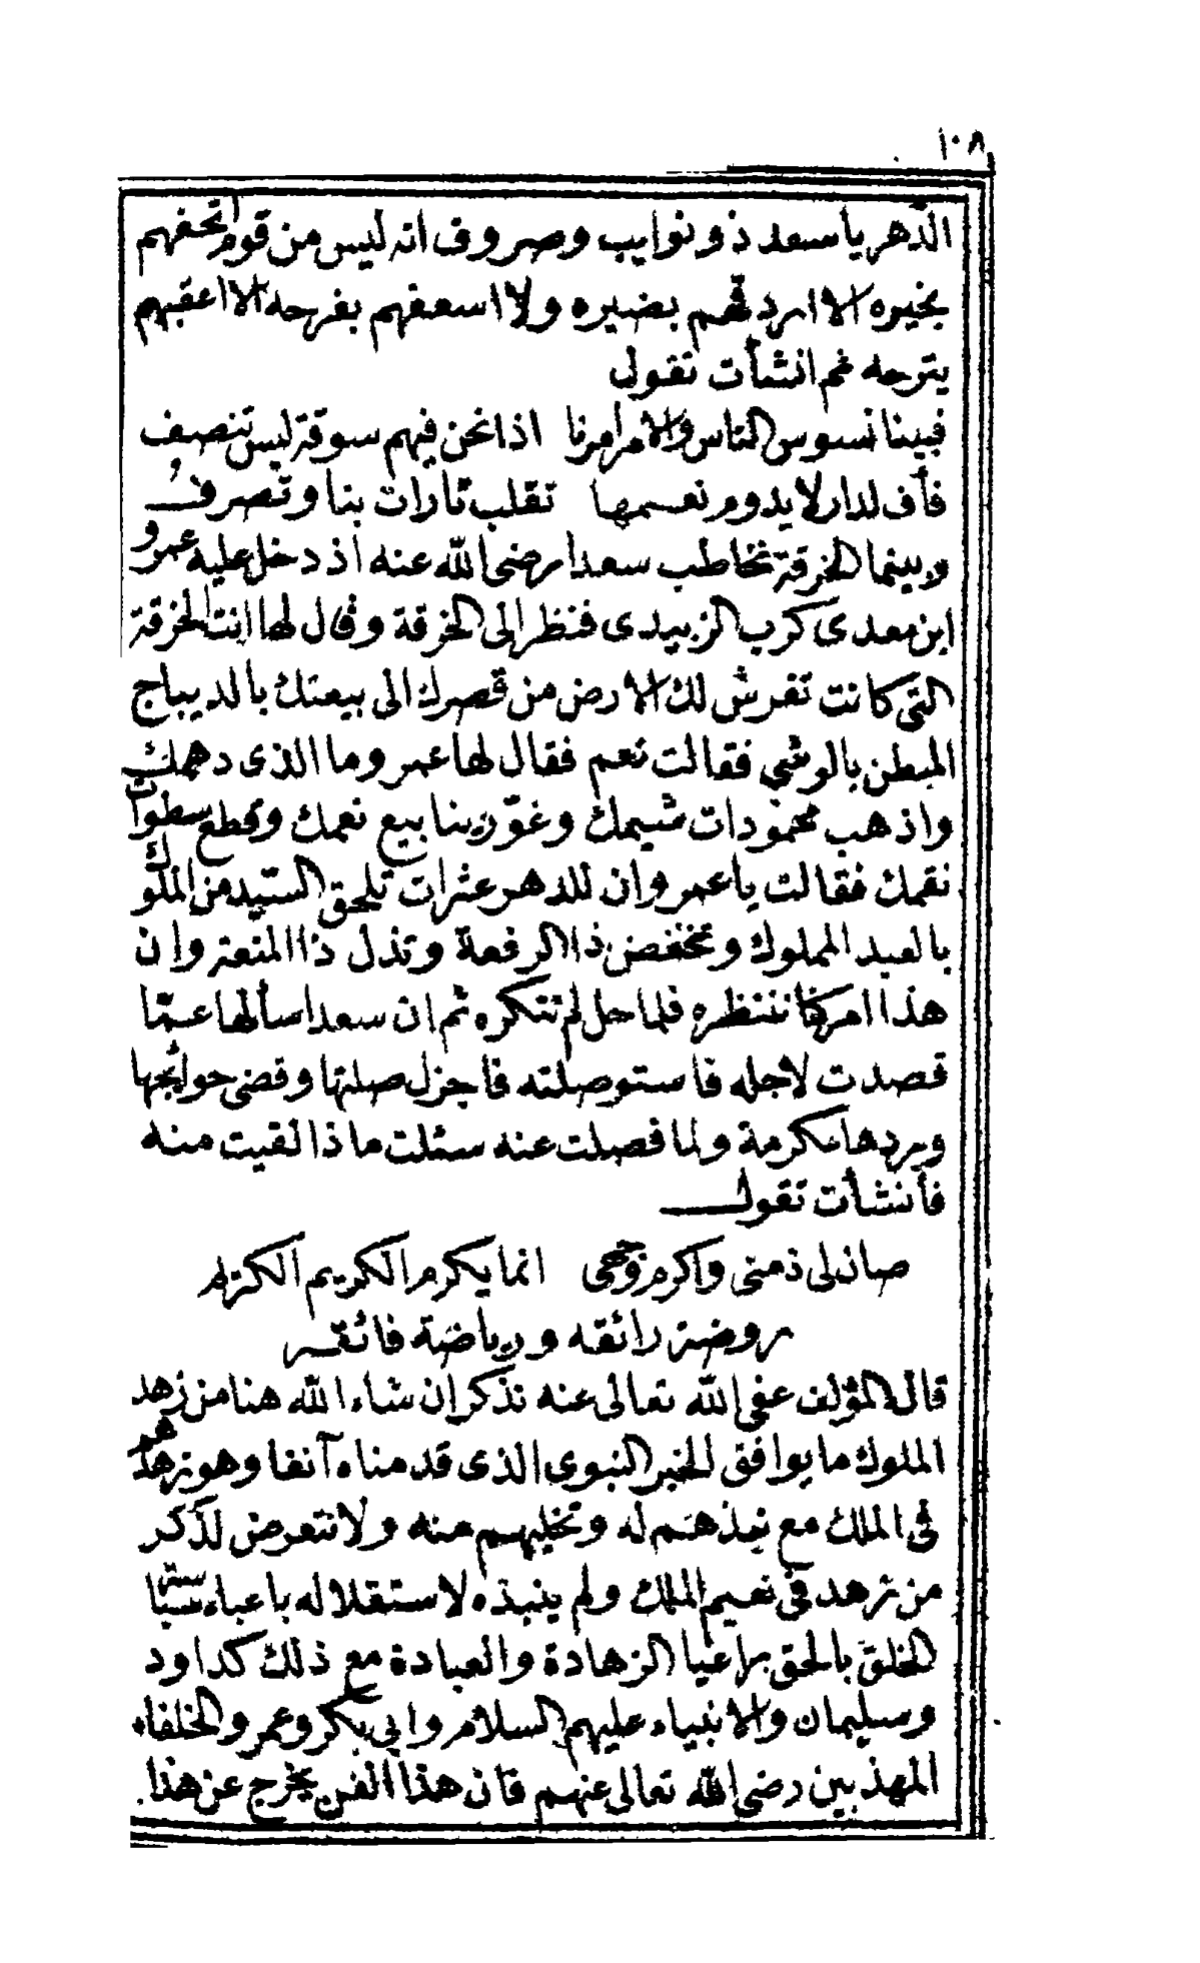 ١٠٨
الدهر يا سعد ذو نوايب وصروف انه ليس من قوم اتحفهم
بخيره الا اردفهم بضيره ولا اسعفهم بفرحه الا اعقبهم
بترحه ثم انشأت تقول
فبينا نسوس الناس والامر امرنا اذا نحن فيهم سوقة ليس تنصف
فأف لدار لا يدوم نعيمها تقلب تارات بنا وتصرف
وبينما الخرقة تخاطب سعدا رضي الله عنه اذ دخل عليه عمرو
ابن معدى كرب الزبيدى فنظر الى الخرقة وقال لها انت الخرقة
التى كانت تفرش لك الارض من قصرك الى بيعتك بالديباج
المبطن بالوشي فقالت نعم فقال لها عمرو ما الذى دهمك
واذهب محمودات شيمك وغوّر ينابيع نعمك وقطع سطوات
نقمك فقالت يا عمرو ان للدهر عثرات تلحق السيد من الملوك
بالعبد المملوك وتخفض ذا الرفعة وتذل ذا المنعة وان
هذا امر كنا ننتظره فلما حل لم ننكره ثم ان سعدا سألها عمّا
قصدت لاجله فاستوصلته فاجزل صلتها وقضى حوائجها
وردها مكرمة ولما فصلت عنه سئلت ماذا لقيت منه
فأنشأت تقول
صان لى ذمتى واكرم وجهى انما يكرم الكريم الكريم
روضة رائقه ورياضة فائقه
قال المؤلف عفى الله تعالى عنه نذكر ان شاء الله هنا من زهد
الملوك ما يوافق الخبر النبوى الذى قدمناه آنفا وهو زهدهم
فى الملك مع نبذهم له وتخليهم منه ولا نتعرض لذكر
من زهد فى نعيم الملك ولم ينبذه لاستقلاله باعباء سياسة
الخلق بالحق مراعيا الزهادة والعبادة مع ذلك كداود
وسليمان والانبياء عليهم السلام وابى بكر وعمر والخلفاء
المهذبين رضى الله تعالى عنهم فان هذا الفن يخرج عن هذا